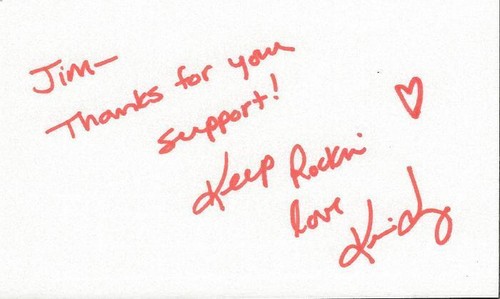 Jim-
Thanks for your
support!
Keep Rockin
love